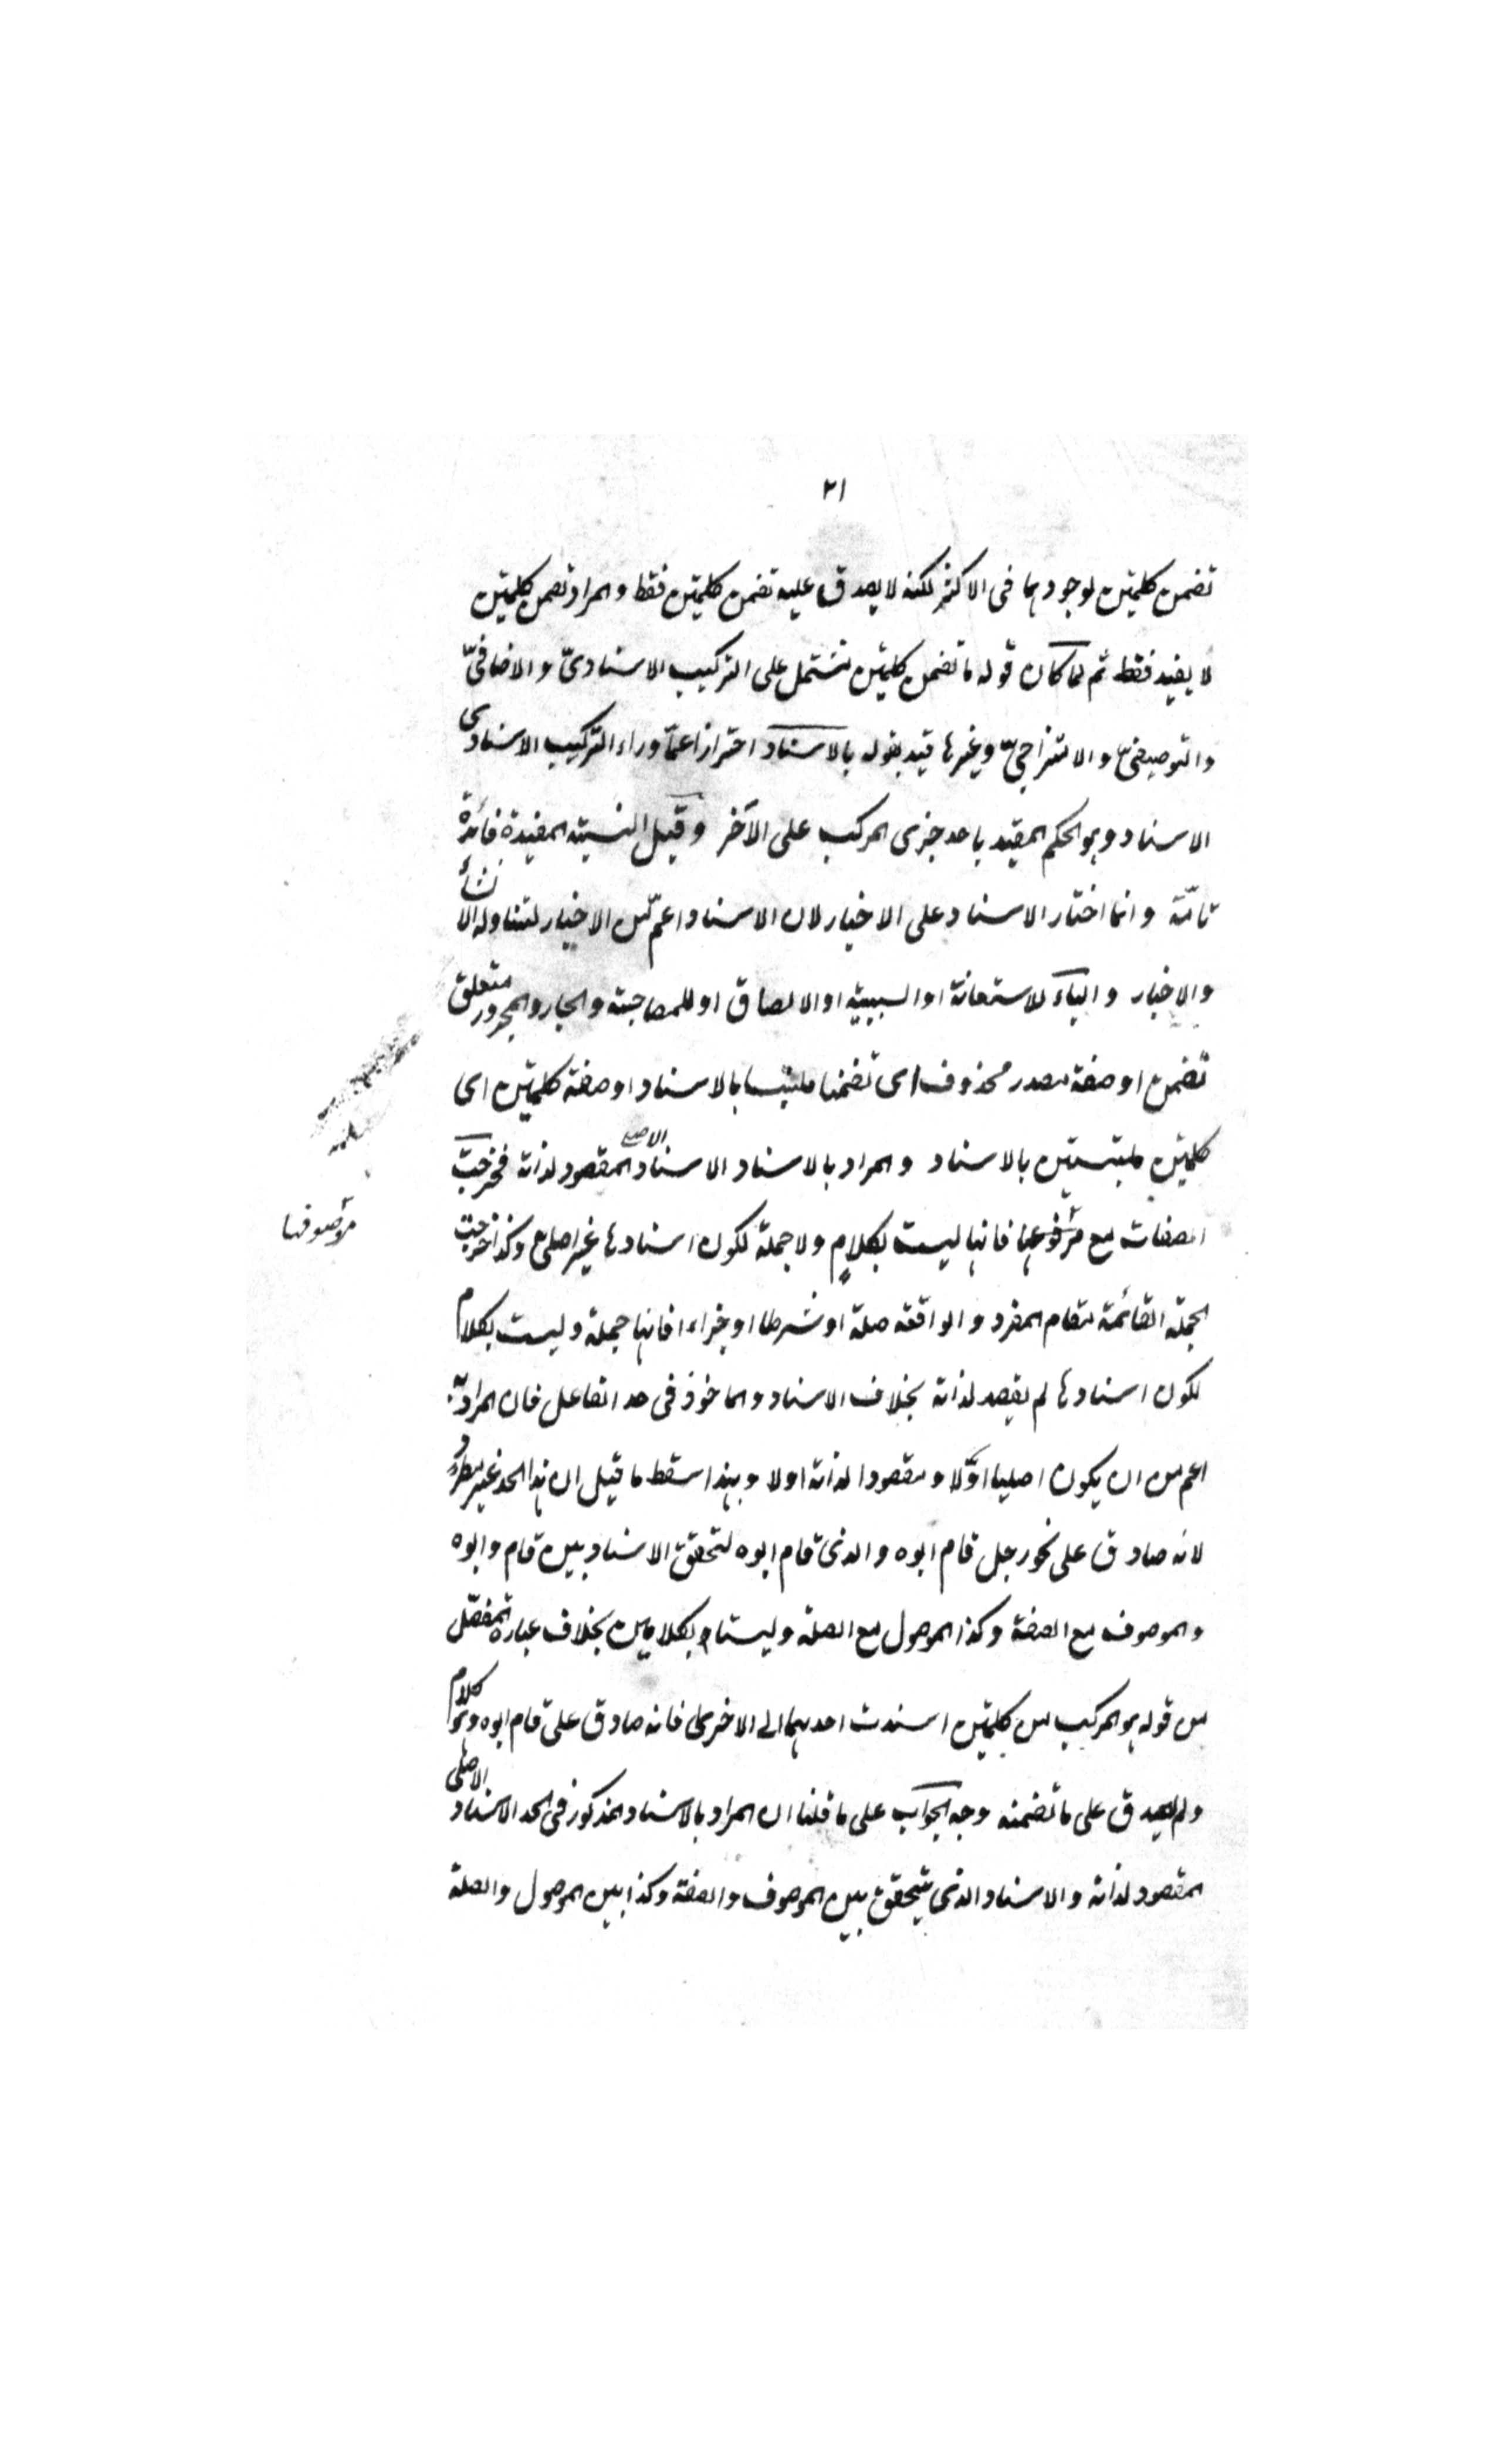 ٢١
تضمن كلمتين لوجودهما فى الاكثر لكنه لا يصدق عليه تضمن كلمتين فقط والمراد تضمن كلمتين
لا يفيد فقط ثم لما كان قوله ما تضمن كلمتين تشتمل على التركيب الاسنادىّ والاضافىّ
والتوصيفىّ والامتزاجىّ وغيرها قيد بقوله بالاسناد احترازا عمّا وراء التركيب الاسنادى
الاسناد وهو الحكم المقيد باحد جزى المركب على الآخر وقيل النسبة المفيدة فائدة
تامّة وانما اختار الاسناد على الاخبار لان الاسناد اعمّ من الاخبار لتناوله الانشاء
والاخبار والباء للاستعانة او السببية او الالصاق او للمصاحبة والجار والمجرور متعلق
تضمن او صفة مصدر محذوف اى تضمنا ملتبسا بالاسناد او صفة كلمتين اى
كلمتين ملتبستين بالاسناد والمراد بالاسناد الاسناد الاصلى المقصود لذاته فخرجت
الصفات مع مرفوعها فانها ليست بكلامٍ ولا جملة لكون اسنادها غير اصلى وكذا خرجت
موصوفها
الجملة القائمة مقام المفرد والواقعة صلة او شرطا او جزاء افانها جملة وليست بكلام
لكون اسنادها لم يقصد لذاته بخلاف الاسناد والماخوذ فى حد الفاعل فان المراد به
اعم من ان يكون اصليا اوّلا ومقصودا لذاته اولا وبهذا سقط ما قيل ان هذا الحد غير مطرد
لانه صادق على نحو رجل قام ابوه والذى قام ابوه لتحقق الاسناد بين قام وابوه
والموصوف مع الصفة وكذا الموصول مع الصلة وليستا بكلامين بخلاف عبارة المفصّل
من قوله هو المركب من كلمتين اسندت احدهما الى الاخرى فانه صادق على قام ابوه وهو كلام
ولم يصدق على ما تضمنه وجه الجواب على ما قلنا ان المراد بالاسناد المذكور فى الحد الاسناد الاصلى
المقصود لذاته والاسناد الذى يتحقق بين الموصوف والصفة وكذا بين الموصول والصلة